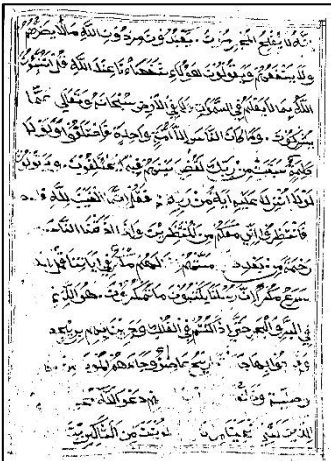 انه لا يفلح المجرمون ويعبدون من دون الله ما لا يضرهم
ولا ينفعهم ويقولون هؤلاء شفعاؤنا عند الله قل اتنبئون
الله بما لا يعلم في السموات ولا في الارض سبحانه وتعالى عما
يشركون وما كان الناس الا امة واحدة فاختلفوا ولولا
كلمة سبقت من ربك لقضي بينهم فيه يختلفون ويقولون
لولا انزل عليه اية من ربه فقل انما الغيب لله
فانتظروا اني معكم من المنتظرين واذا اذقنا الناس
رحمة من بعد مستهم لهم مكر في اياتنا قل الله
اسرع مكرا ان رسلنا يكتبون ما تمكرون هو الذي
في البر والبحر حتى اذا كنتم في الفلك وجرين بهم بريح
بها ريح عاصف وجاءهم الموج من
دعوا الله
من الشاكرين